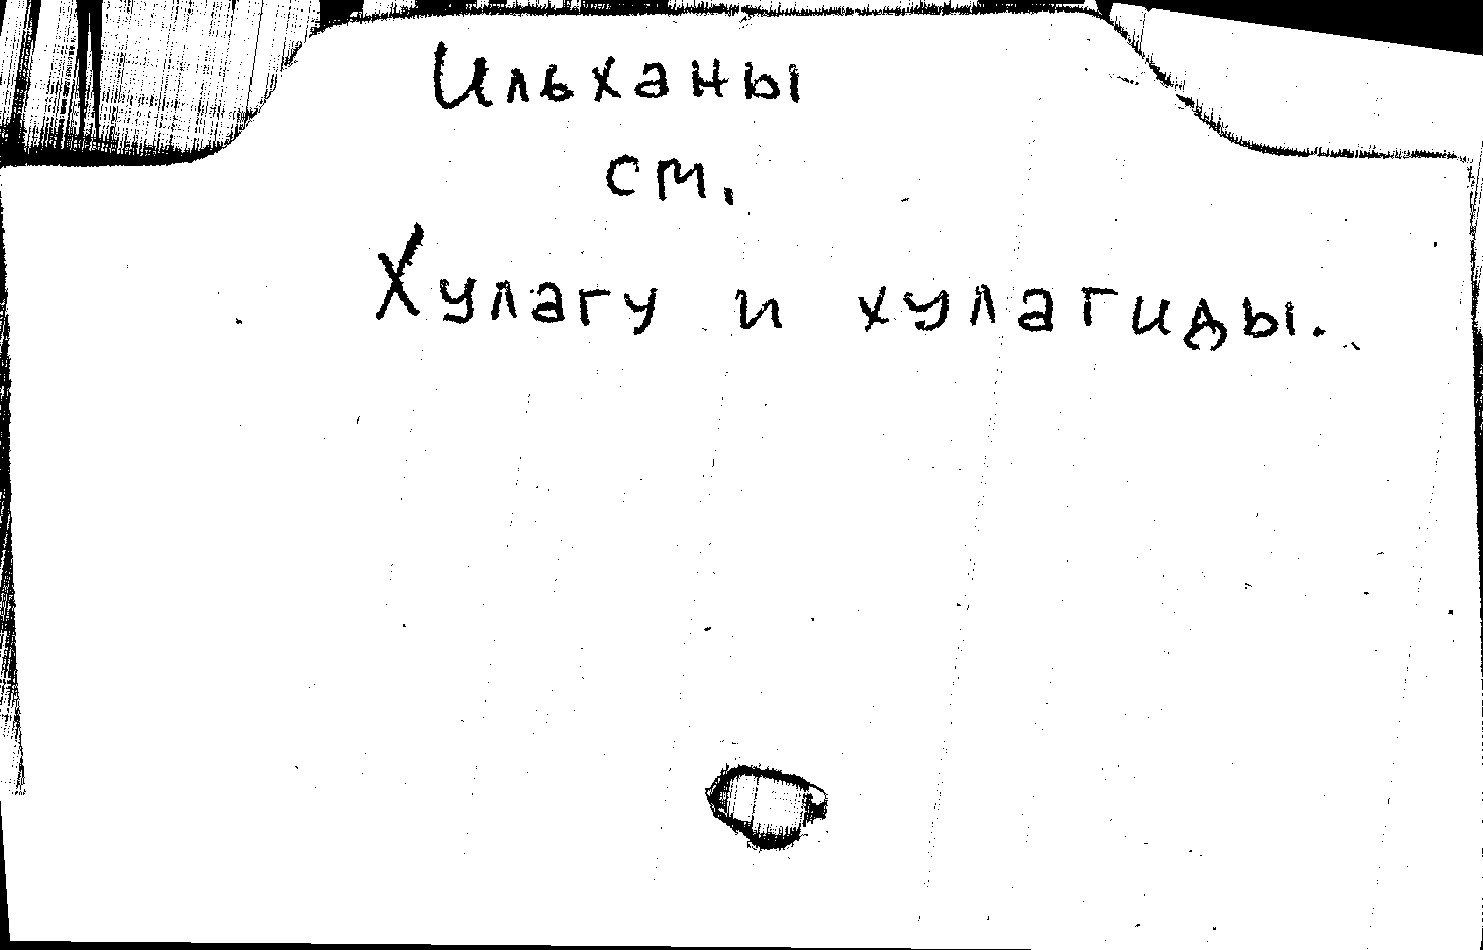 Ильханы
см.
Хулагу и хулагиды.